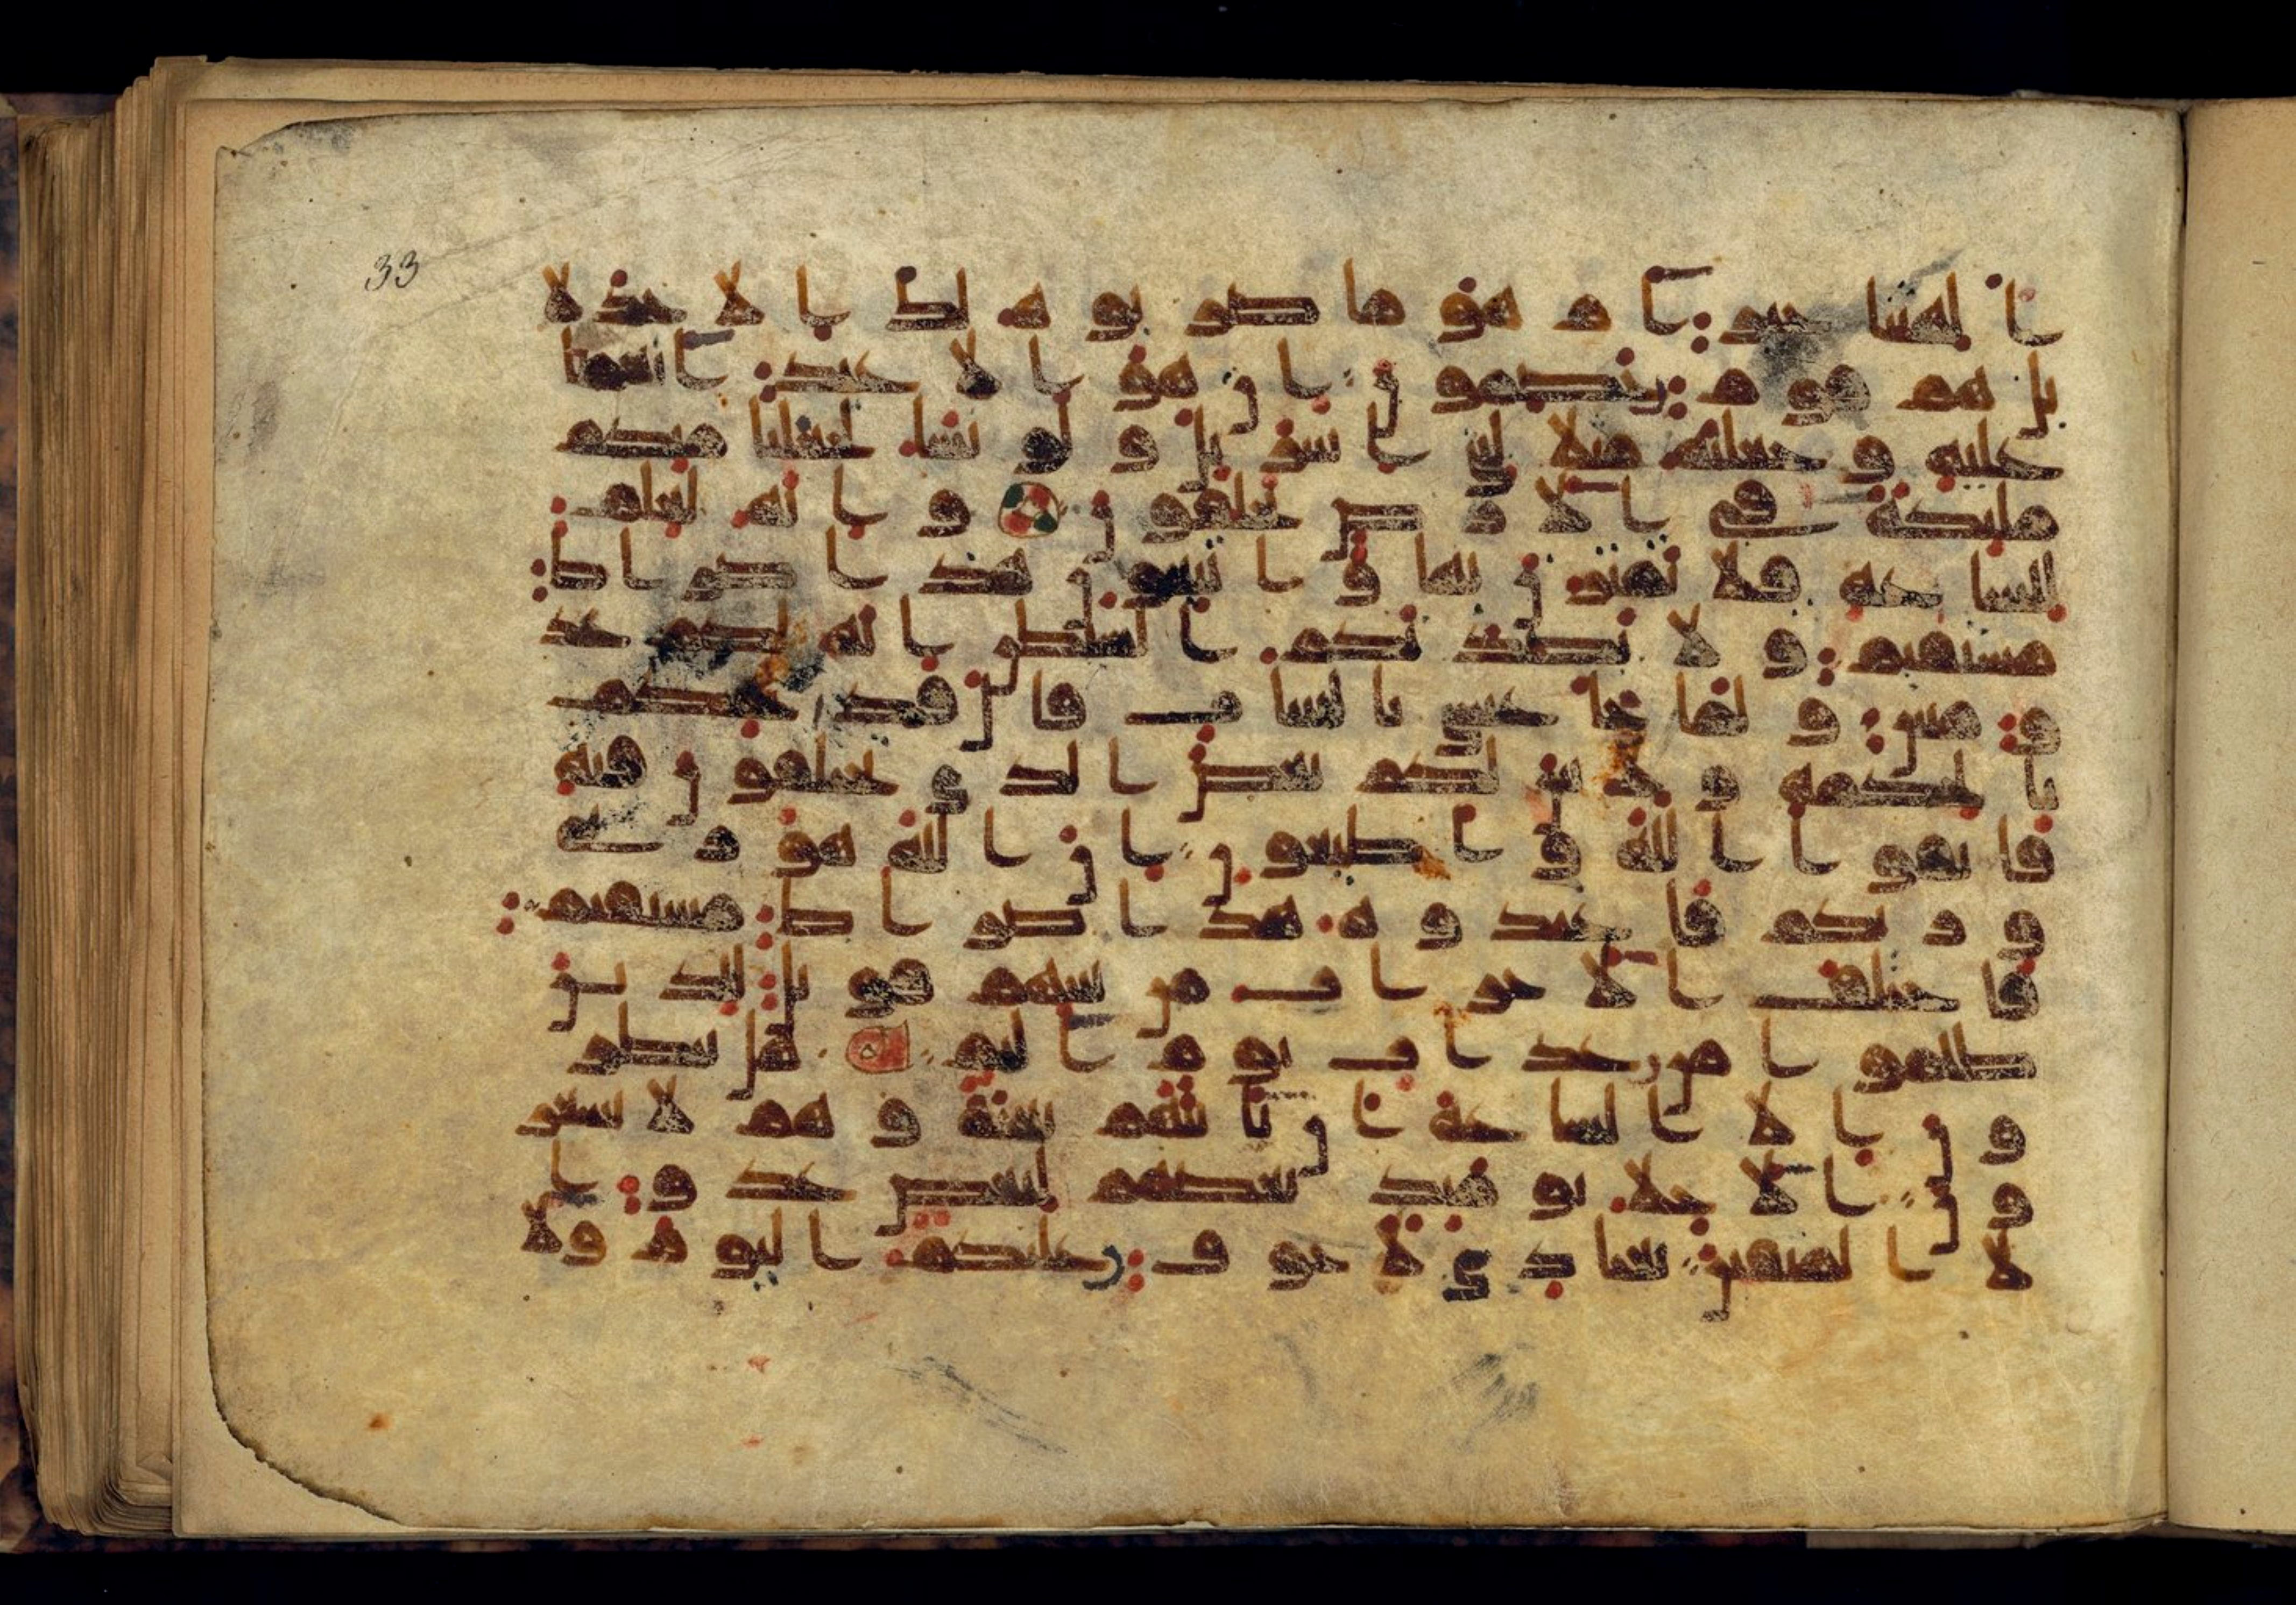 ءالهتنا خير ام هو ما ضربوه لك الا جدلا
بل هم قوم خصمون ان هو الا عبد انعمنا
عليه وجعلنه مثلا لبني اسريل ولو نشا لجعلنا منكم
مليكة في الارض يخلفون وانه لعلم
للساعة فلا تمترن بها واتبعون هذا صراط
مستقيم ولا يصدنكم الشيطن انه لكم عد
و مبين ولما جا عيسى بالبينات قال قد جيتكم
بالحكمة ولابين لكم بعض الذي تختلفون فيه
فاتقوا الله واطيعون ان الله هو ربي
وربكم فاعبدوه هذا صراط مستقيم
فاختلف الاحزاب من بينهم فويل للذين
ظلموا من عذاب يوم اليم هل ينظر
ون الا الساعة ان تاتيهم بغتة وهم لا يشعر
ون الاخلا يوميذ بعضهم لبعض عدو ا
لا المتقين يعبادي لا خوف عليكم اليوم ولا
33